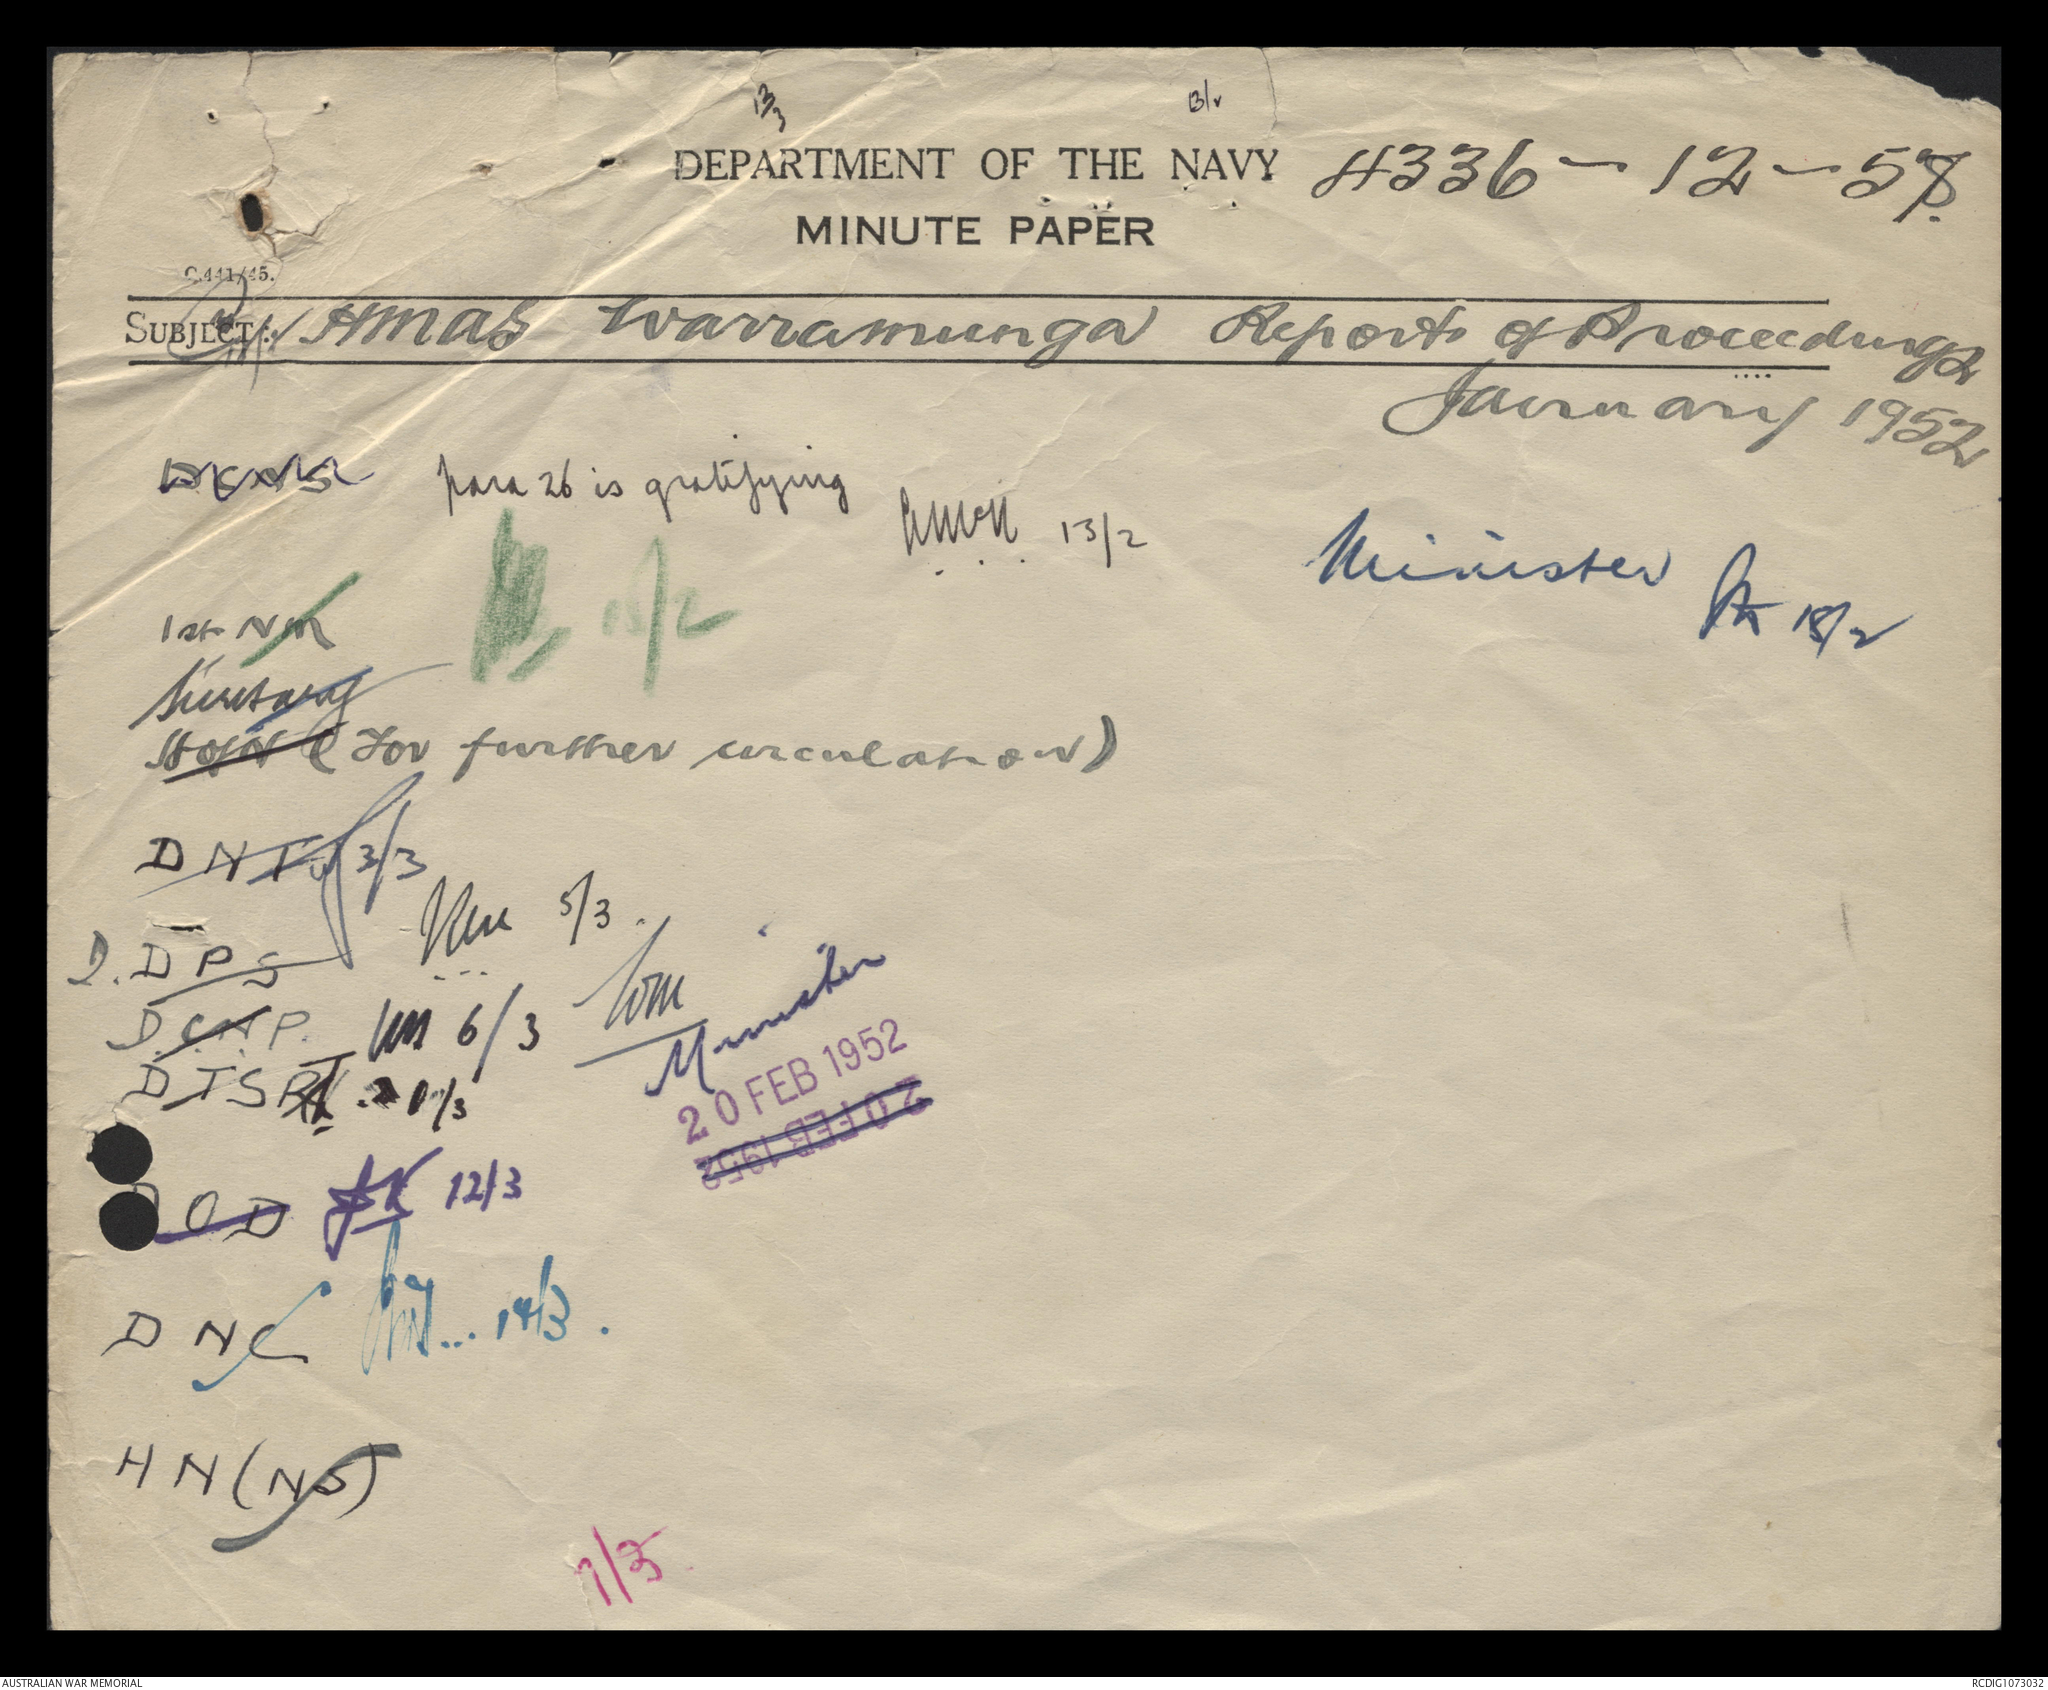 13/3
13/2
DEPARTMENT OF THE NAVY 4336-12-58
MINUTE PAPER
C.441/45.
SUBJECT: HMAS Warramunga Reports of Proceedings
January 1952
para 26 is gratifying
13/2
Minister
18/2
15/2
1st NM
Secretary
H of N (for further circulation)
DNTW 3/3
5/3.
D.DPS
D.C.N.P. 6/3
Minister
20 FEB 1952
20 FEB 1952
DTSR
/3
DOD JK 12/3
DNC ... 14/3.
HN(NS)
7/3
AUSTRALIAN WAR MEMORIAL
RCDIG1073032